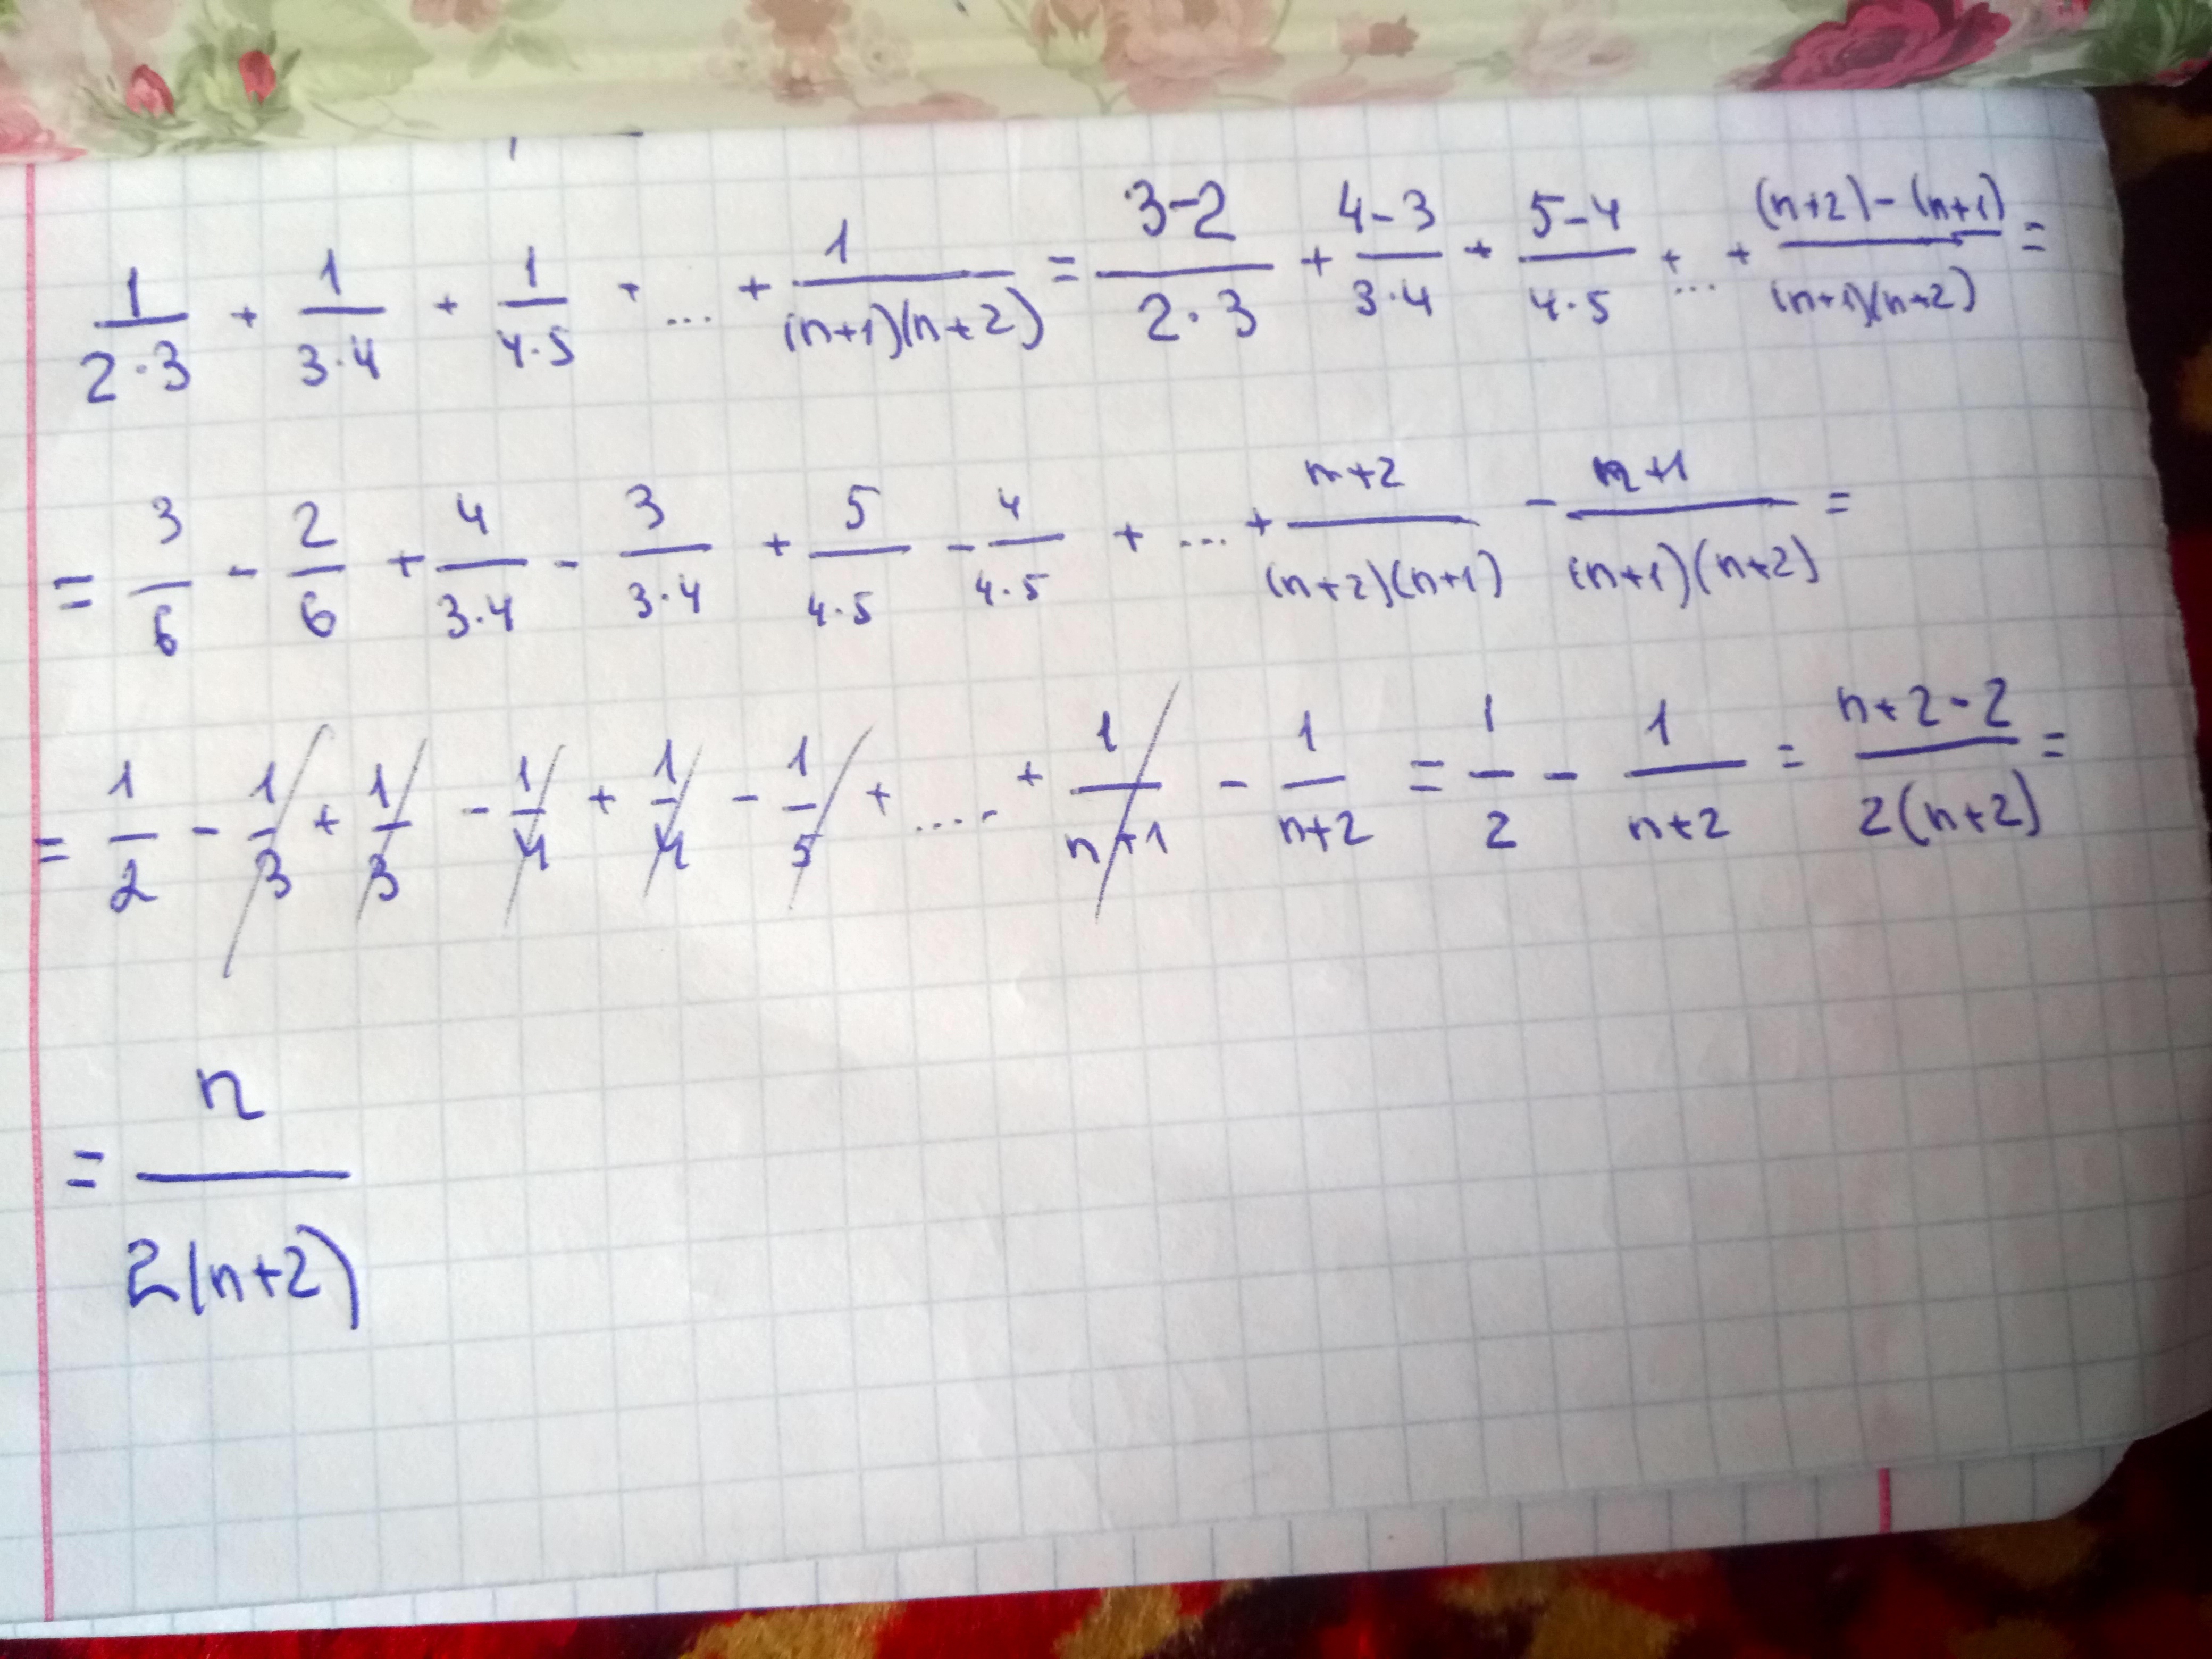 1/(2·3) + 1/(3·4) + 1/(4·5) + ... + 1/((n+1)(n+2)) = (3-2)/(2·3) + (4-3)/(3·4) + (5-4)/(4·5) + ... + ((n+2)-(n+1))/((n+1)(n+2)) =
= 3/6 - 2/6 + 4/(3·4) - 3/(3·4) + 5/(4·5) - 4/(4·5) + ... + (n+2)/((n+2)(n+1)) - (n+1)/((n+1)(n+2)) =
= 1/2 - 1/3 + 1/3 - 1/4 + 1/4 - 1/5 + .... + 1/(n+1) - 1/(n+2) = 1/2 - 1/(n+2) = (n+2-2)/(2(n+2)) =
= n/(2(n+2))